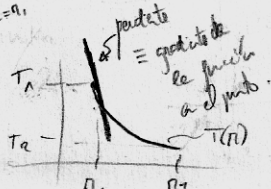 pendiente
≡ gradiente de
la función
en el punto.
T₁
T₂
T(r)
r₁
r₂